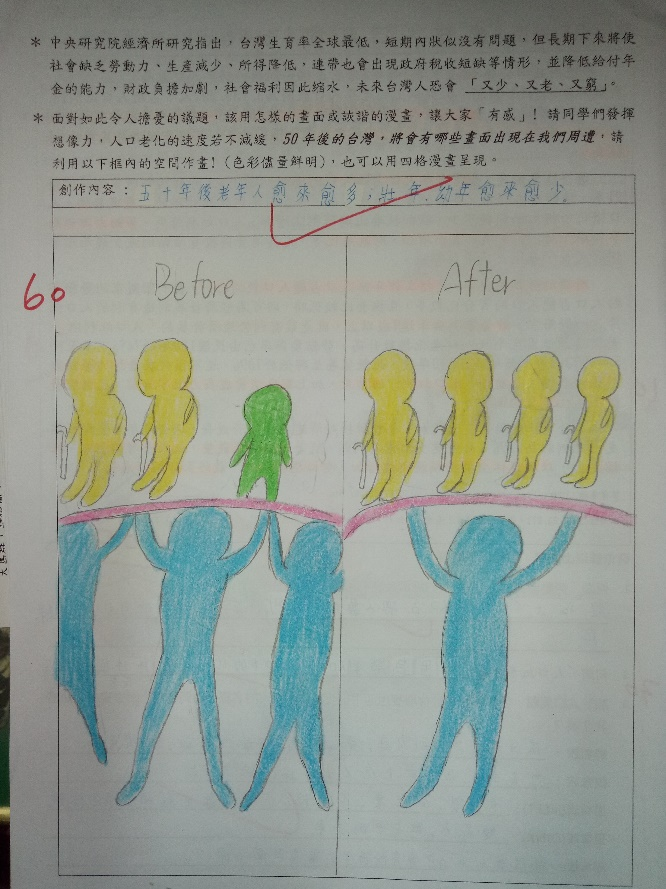 * 中央研究院經濟所研究指出，台灣生育率全球最低，短期內狀似沒有問題，但長期下來將使
社會缺乏勞動力、生產減少、所得降低，連帶也會出現政府稅收短缺等情形，並降低給付年
金的能力，財政負擔加劇，社會福利因此縮水，未來台灣人恐會「又少、又老、又窮」。
* 面對如此令人擔憂的議題，該用怎樣的畫面或詼諧的漫畫，讓大家「有感」！請同學們發揮
想像力，人口老化的速度若不減緩，50年後的台灣，將會有哪些畫面出現在我們周遭，請
利用以下框內的空間作畫！(色彩儘量鮮明)，也可以用四格漫畫呈現。
創作內容：五十年後老年人愈來愈多，壯年、幼年愈來愈少。
60
Before
After